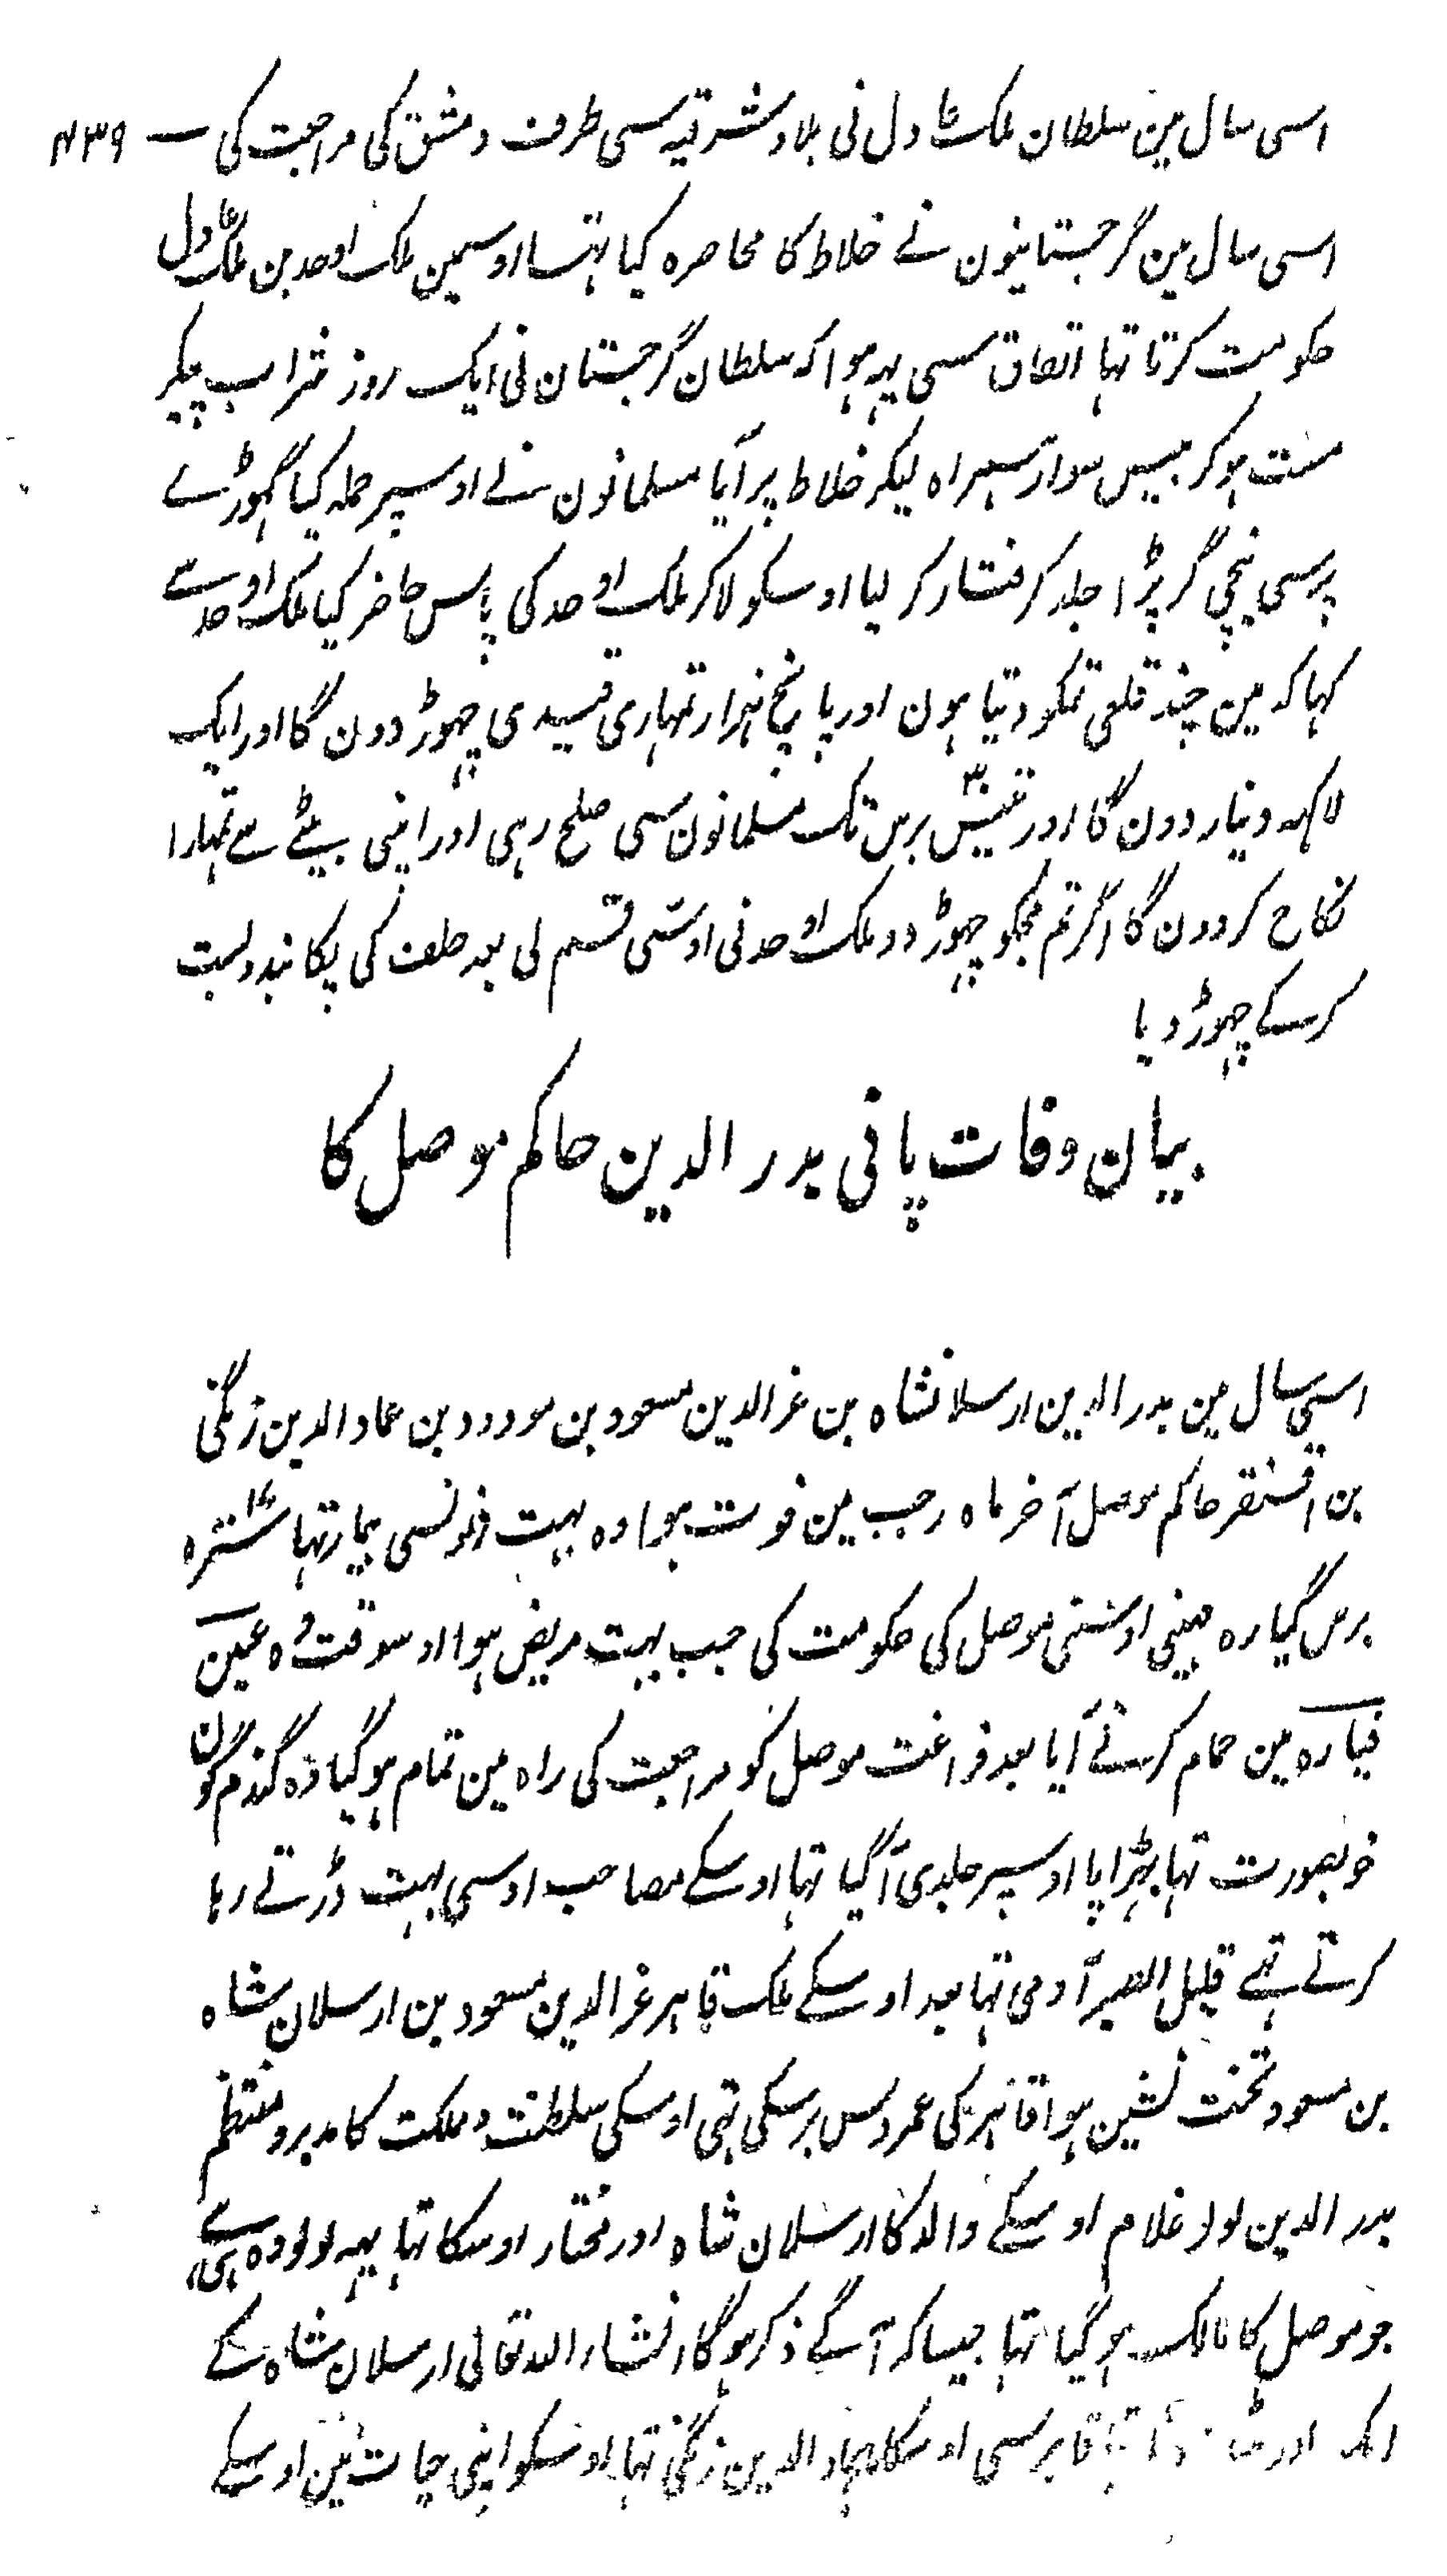 اسی سال مین سلطان ملک عادل نی بلاد شرقیہ سی طرف دمشق کی مراجعت کی — ۴۳۹
اسی سال مین گرجستانیون نے خلاط کا محاصرہ کیا تہا اوسمین ملک اوحد بن ملک عادل
حکومت کرتا تہا اتفاق سی یہہ ہوا کہ سلطان گرجستان نی ایک روز شراب پیکر
مست ہوکر بیس سوار ہمراہ لیکر خلاط پر آیا مسلمانون نے اوسپر حملہ کیا گہوڑے
پر سی نیچی گر پڑا جلد گرفتار کر لیا اوسکو لاکر ملک اوحد کی پاس حاضر کیا ملک اوحد سے
کہا کہ مین چند قلعی تمکو دیتا ہون اور پانچ ہزار تمہاری قیدی چہوڑ دون گا اور ایک
لاکہہ دینار دون گا اور تیس ۳۰ برس تک مسلمانون سی صلح رہی اور اپنی بیٹے سے تمہارا
نکاح کر دون گا اگر تم مجکو چہوڑ دو ملک اوحد نی اوسّی قسم لی بعد حلف کی پکا بندوبست
کرکے چہوڑ دیا
بیان وفات پانی بدر الدین حاکم موصل کا
اسی سال مین بدر الدین ارسلانشاہ بن عز الدین مسعود بن مودود بن عماد الدین زنگی
بن اقسنقر حاکم موصل آخر ماہ رجب مین فوت ہوا وہ بہت دنونسی بیمار تہا سترہ ۱۷
برس گیارہ مہینی اوسنی موصل کی حکومت کی جب بہت مریض ہوا اوسوقت وہ عین
قیارہ مین حمام کرنے آیا بعد فراغت موصل کو مراجعت کی راہ مین تمام ہو گیا وہ گندم گون
خوبصورت تہا بڑہاپا اوسپر جلدی آگیا تہا اوسکے مصاحب اوسی بہت ڈرتے رہا
کرتے تہے قلیل الصبر آدمی تہا بعد اوسکے ملک قاہر عز الدین مسعود بن ارسلان شاہ
بن مسعود تخت نشین ہوا قاہر کی عمر دس برسکی تہی اوسکی سلطنت و مملکت کا مدبر و منتظم
بدر الدین لولو غلام اوسکے والد کا ارسلان شاہ اور مختار اوسکا تہا یہہ لولو وہ ہی ہے
جو موصل کا مالک ہو گیا تہا جیسا کہ آگے ذکر ہوگا انشاء اللہ تعالی ارسلان شاہ کے
ایک اور قاہر سی اوسکا عماد الدین زنگی تہا اوسکو اپنی حیات مین اوسکے